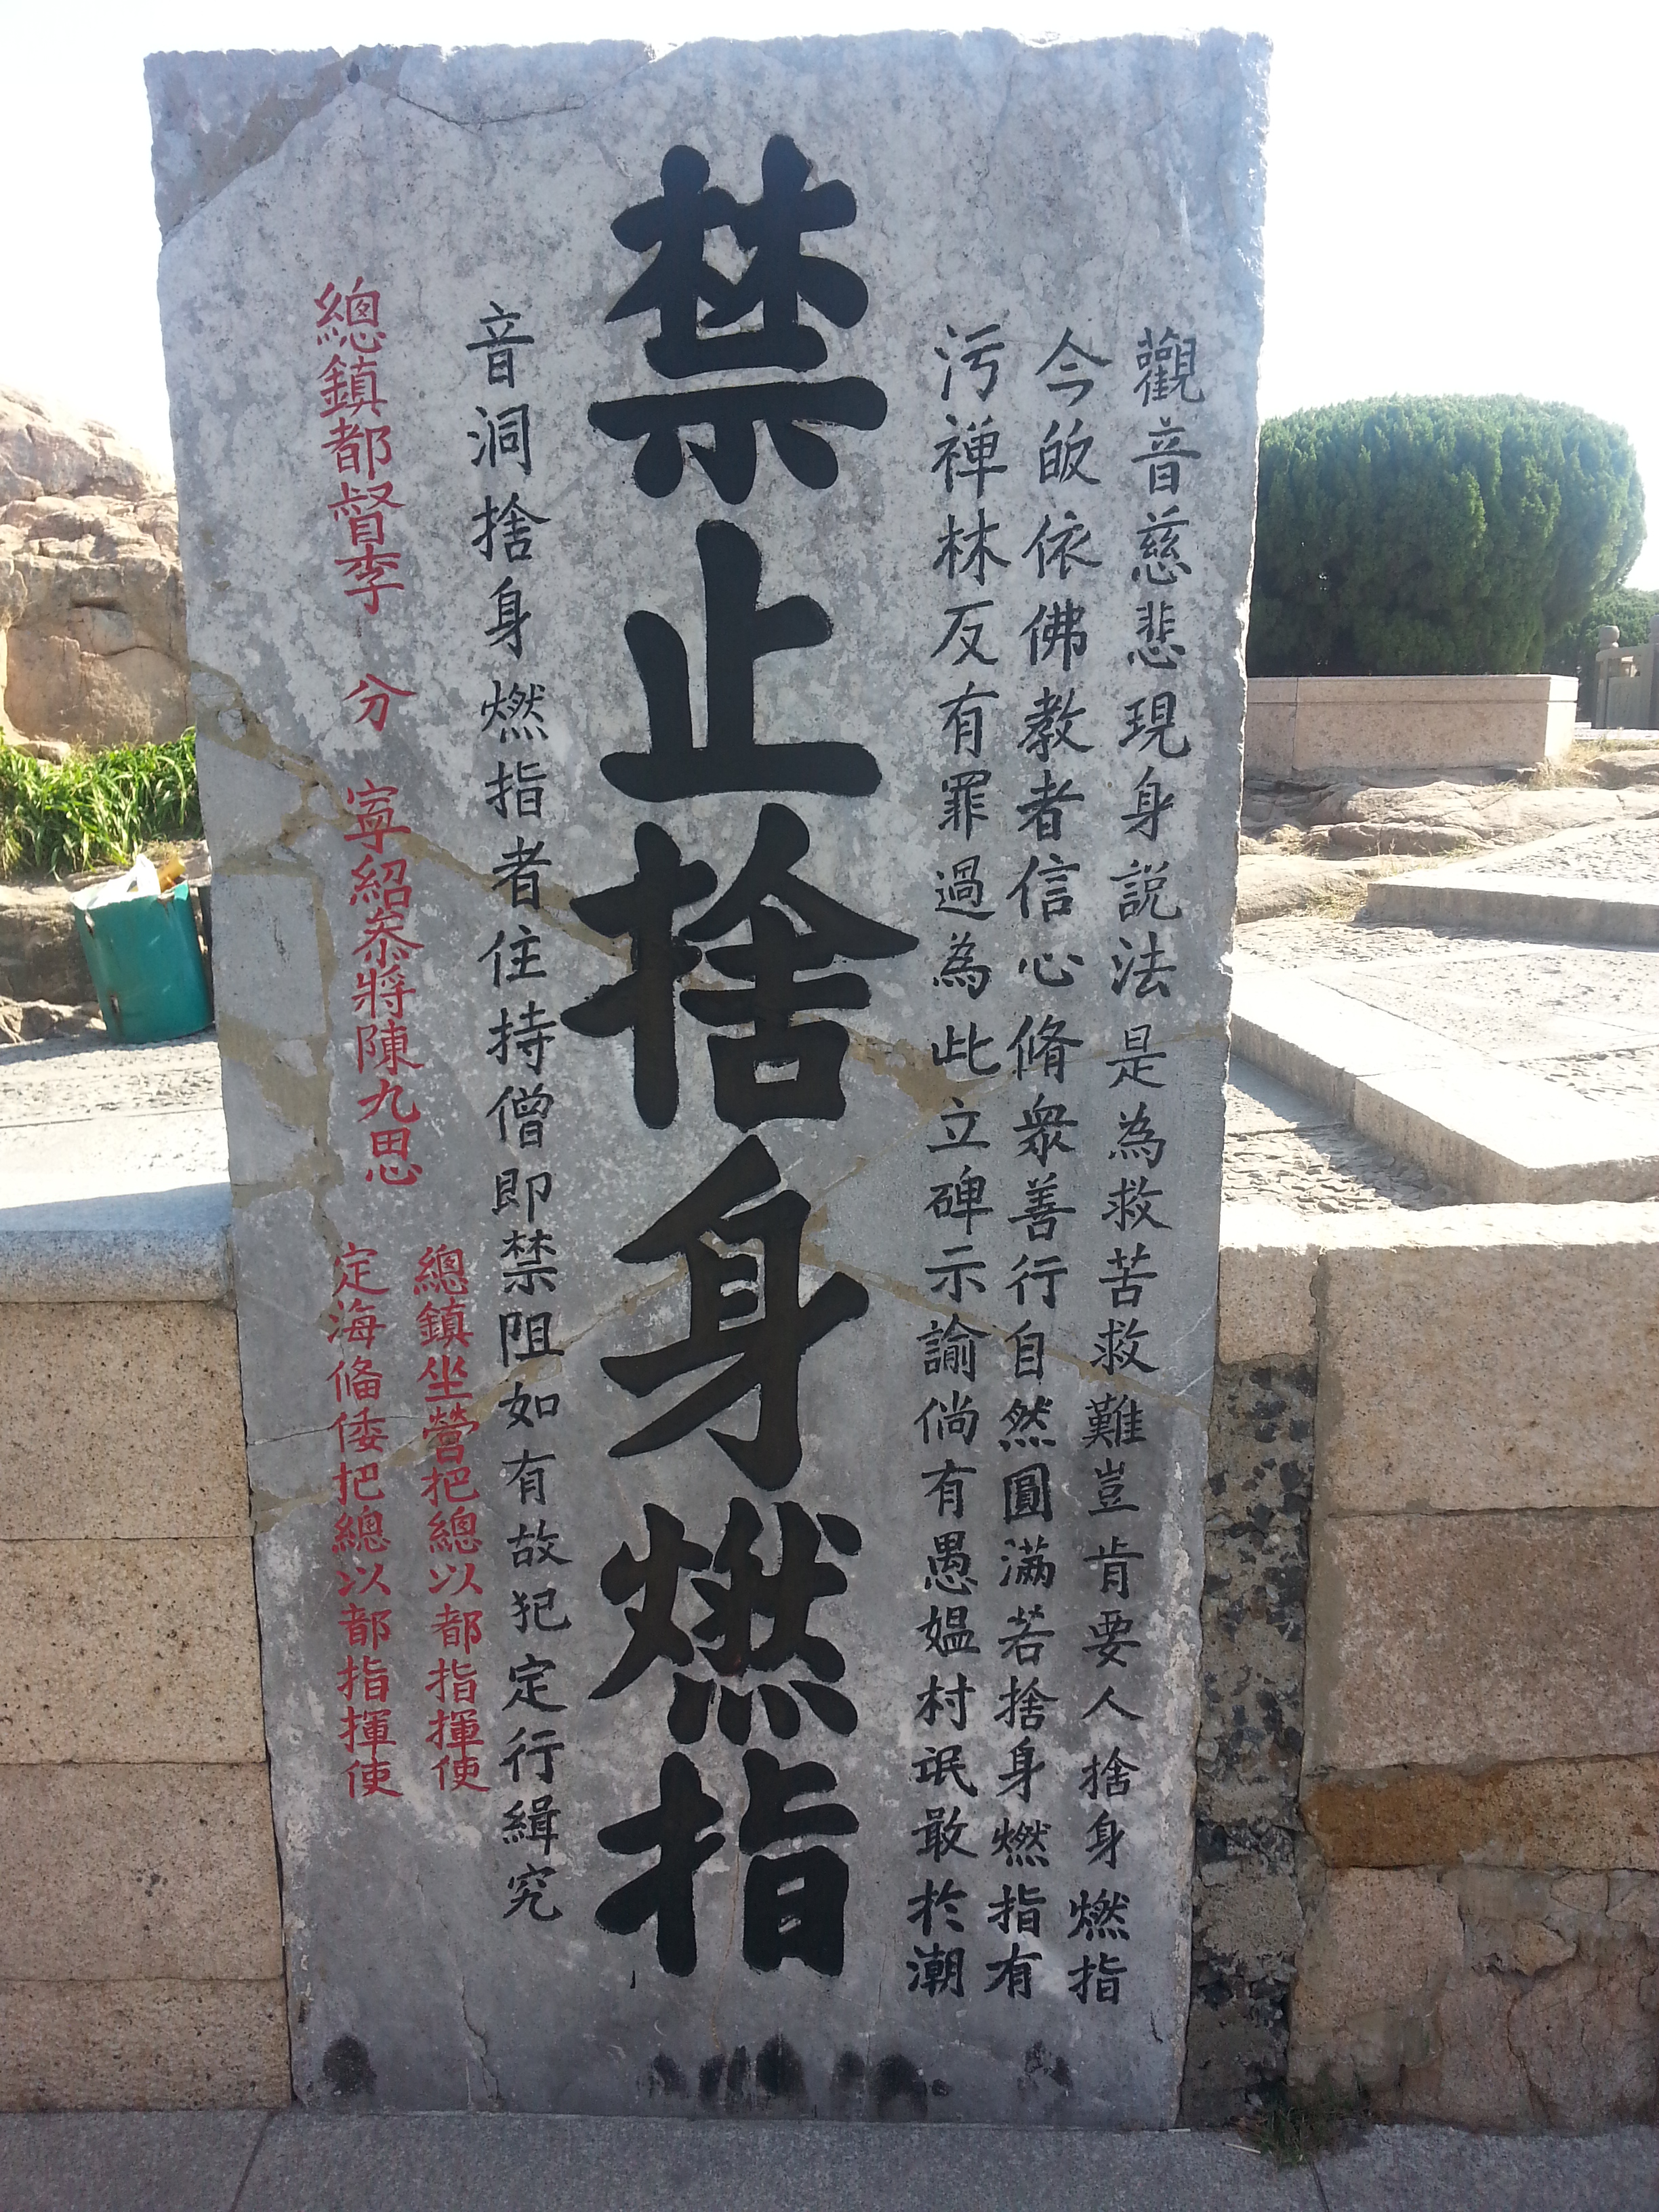 觀音慈悲現身説法是為救苦救難豈肯要人捨身燃指
今皈依佛教者信心脩衆善行自然圓滿若捨身燃指有
污禅林反有罪過為此立碑示諭倘有愚媪村氓敢於潮
禁止捨身燃指
音洞捨身燃指者住持僧即禁阻如有故犯定行緝究
總鎮都督李
分
寧紹叅將陳九思
總鎮坐營把總以都指揮使
定海俻倭把總以都指揮使